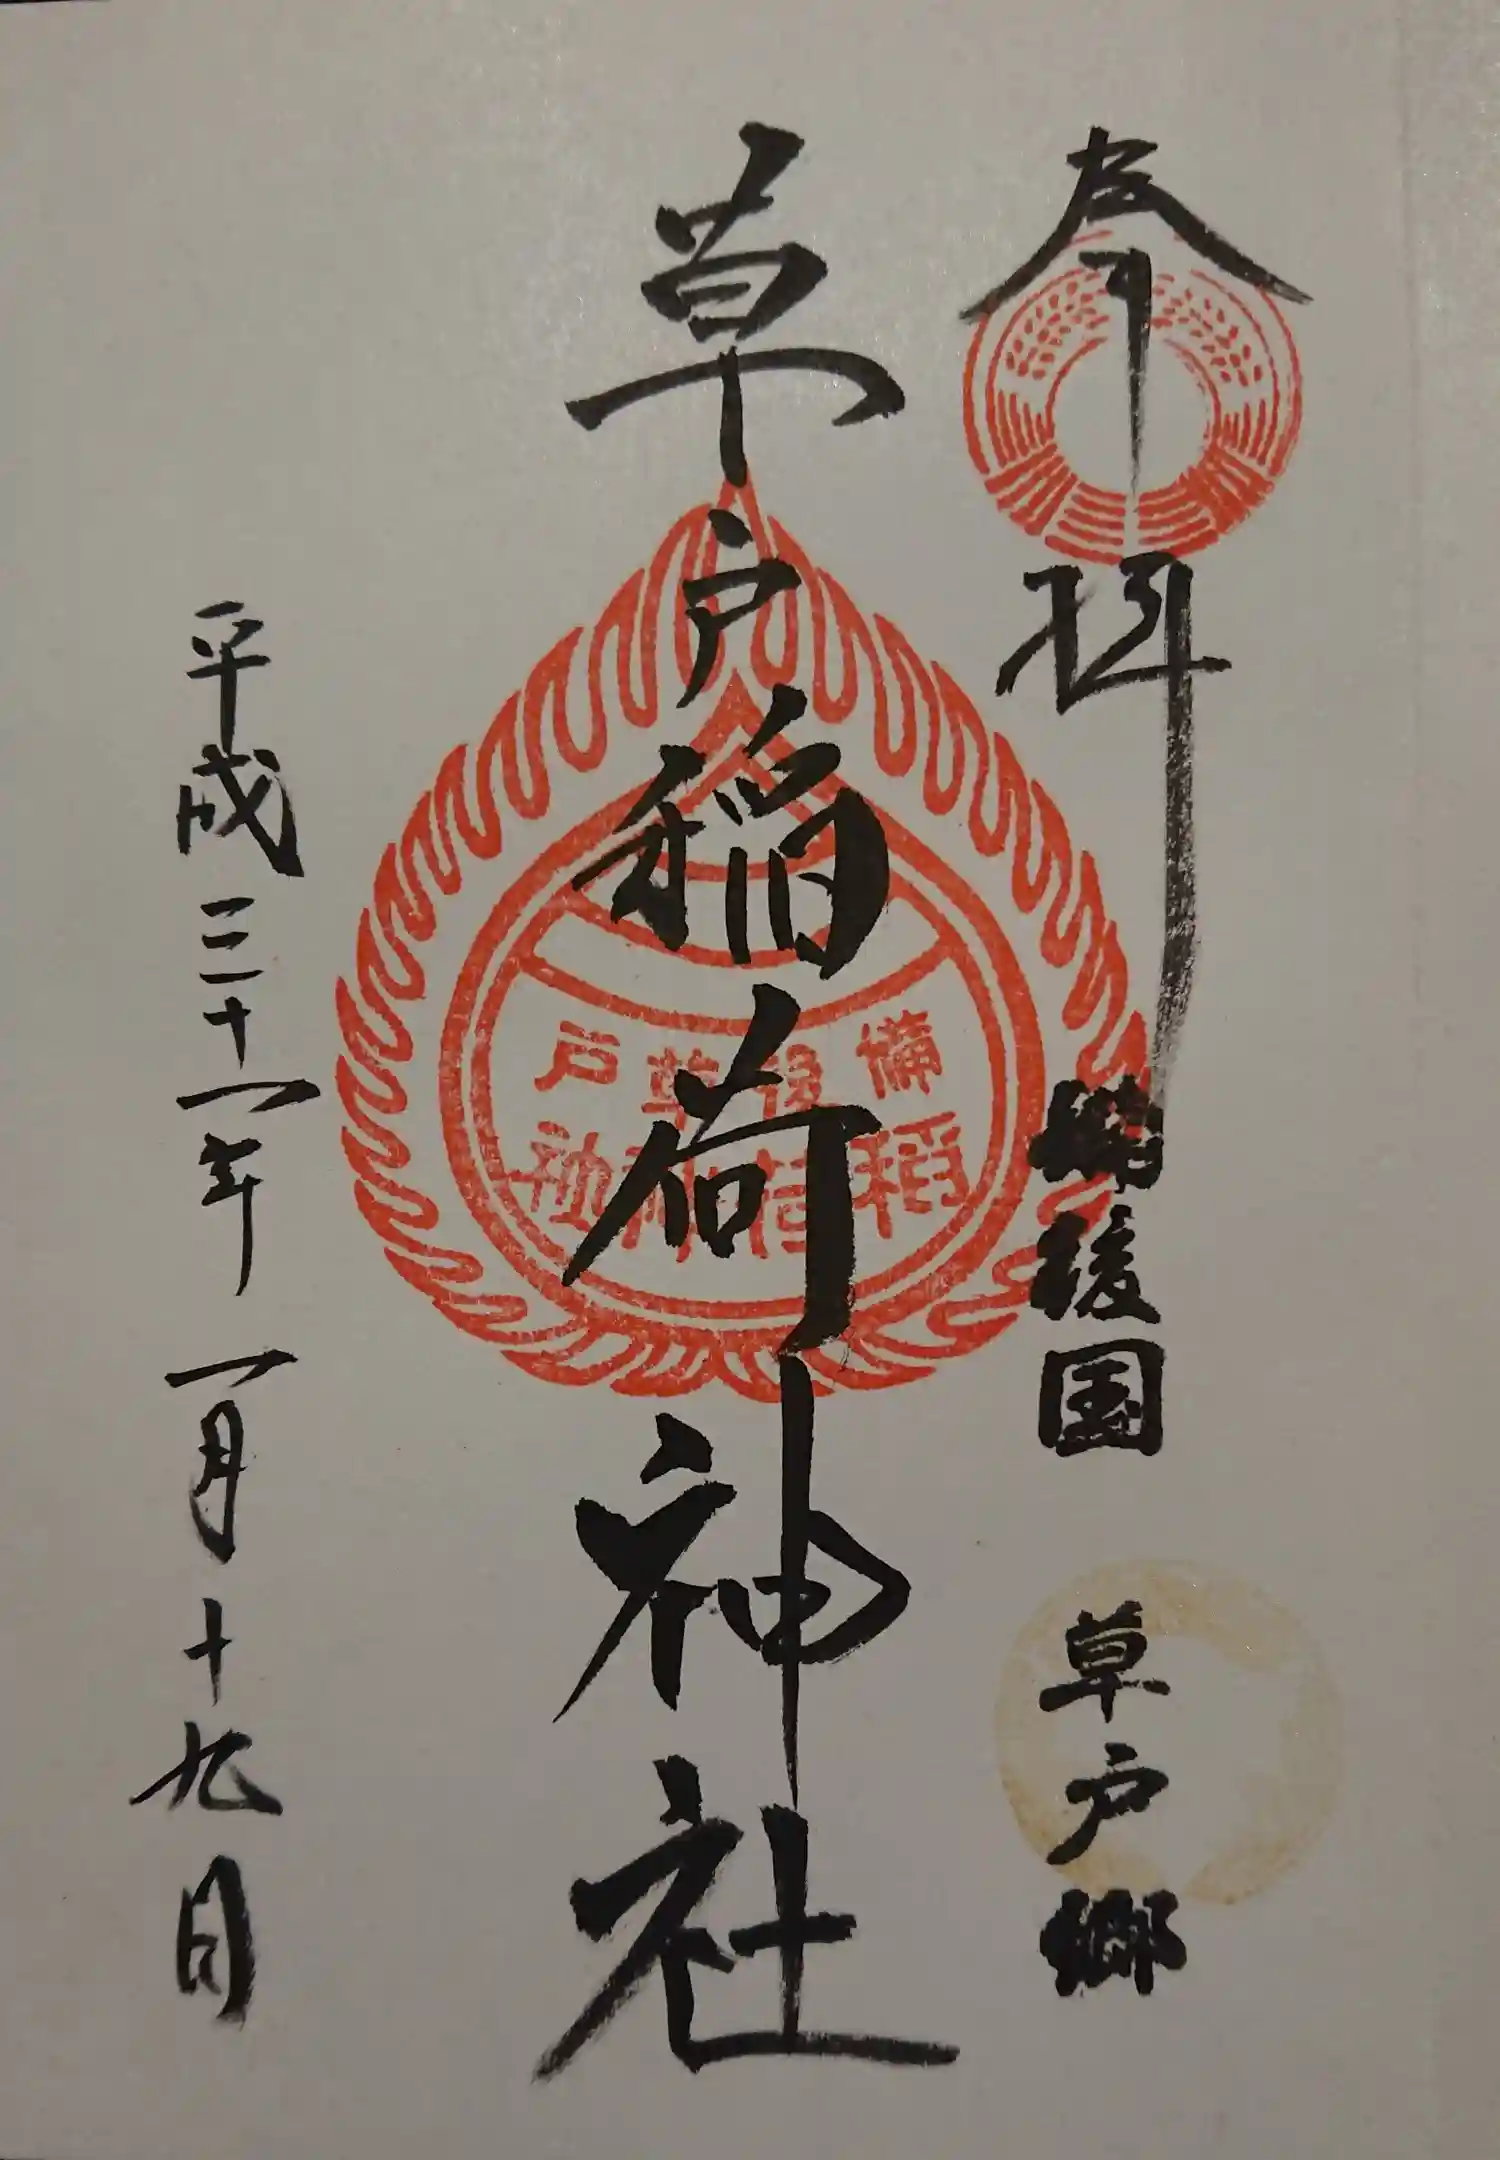 奉拝
備後国 草戸郷
草戸稲荷神社
備後草戸
稲荷神社
平成三十一年一月十九日